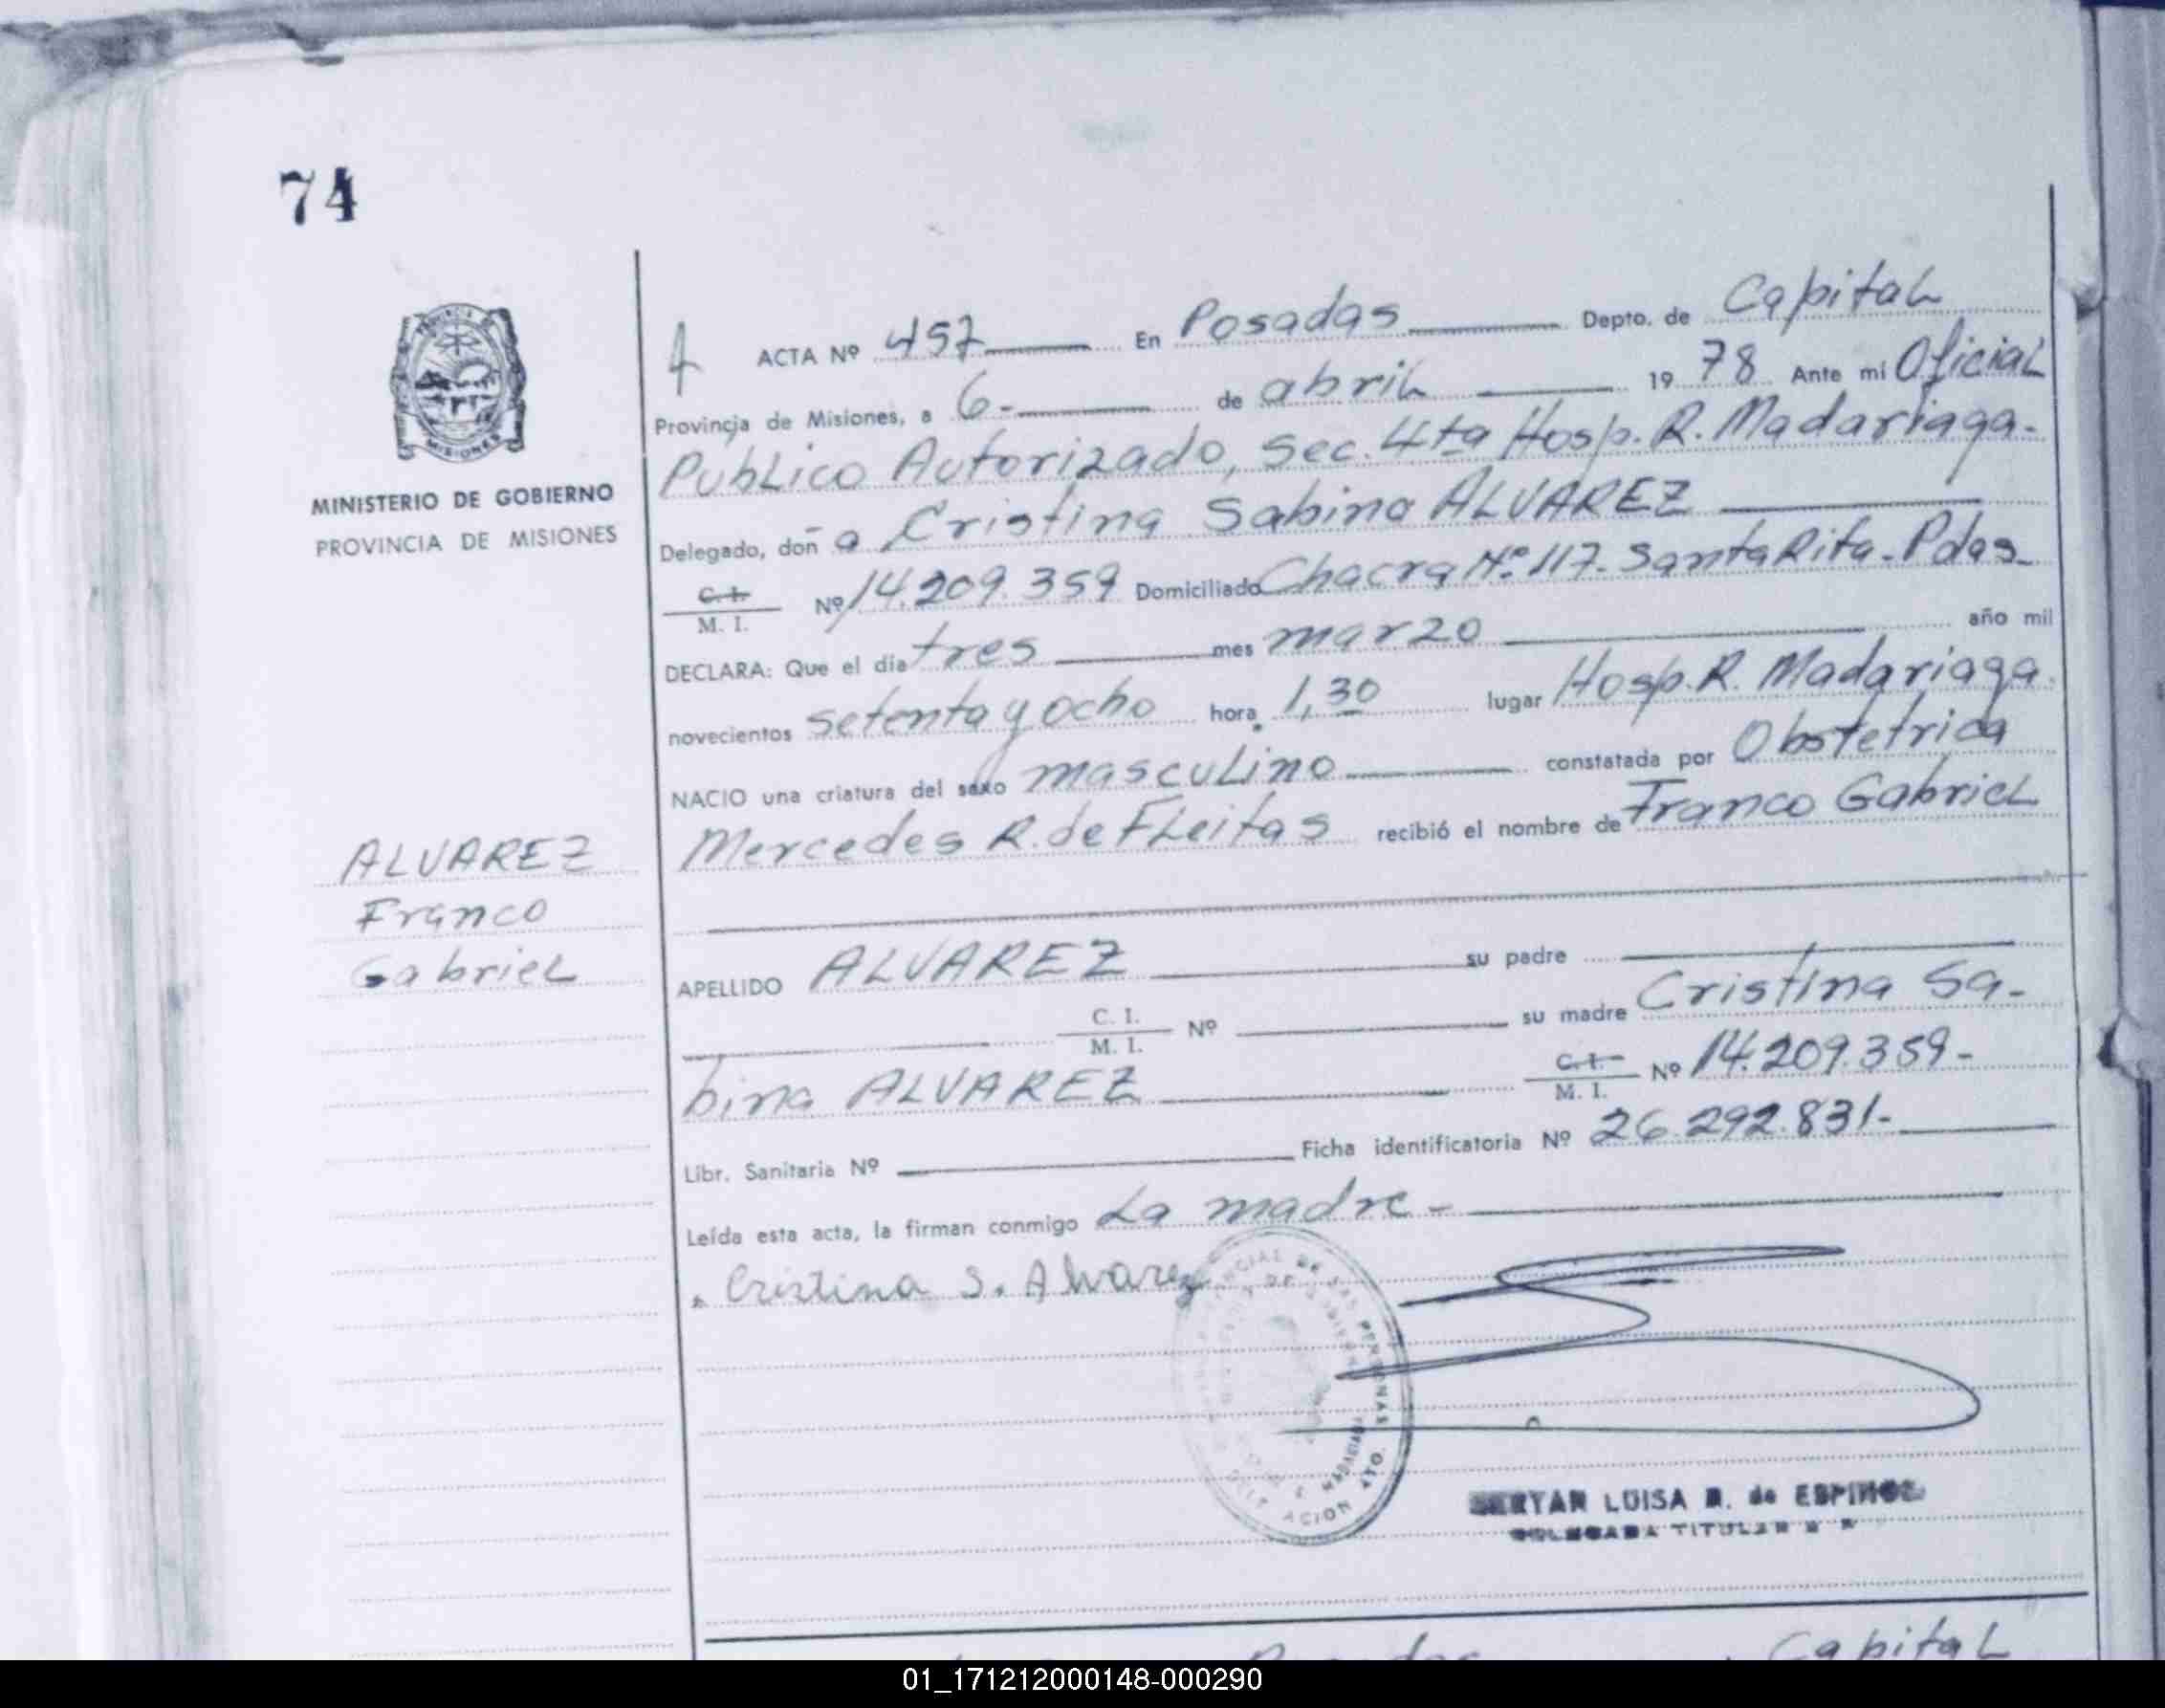 74
MINISTERIO DE GOBIERNO
PROVINCIA DE MISIONES
ALVAREZ
Franco
Gabriel
ACTA Nº 457 En Posadas Depto. de Capital
Provincia de Misiones, a 6- de abril 19 78 Ante mi Oficial
Publico Autorizado, sec. 4ta Hosp. R. Madariaga.
Delegado, doñ a Cristina Sabina ALVAREZ
C. I. / M. I. Nº 14.209.359 Domiciliado Chacra Nº 117. Santa Rita - Pdas
DECLARA: Que el día tres mes marzo año mil
novecientos setenta y ocho hora 1,30 lugar Hosp. R. Madariaga.
NACIO una criatura del sexo masculino constatada por Obstetrica
Mercedes R. de Fleitas recibió el nombre de Franco Gabriel
APELLIDO ALVAREZ su padre
C. I. / M. I. Nº su madre Cristina Sa-
bina ALVAREZ C. I. / M. I. Nº 14.209.359-
Libr. Sanitaria Nº Ficha identificatoria Nº 26.292.831-
Leída esta acta, la firman conmigo La madre -
Cristina S. Alvarez
LUISA R. de ESPINOZA
TITULAR
Capital
01_171212000148-000290